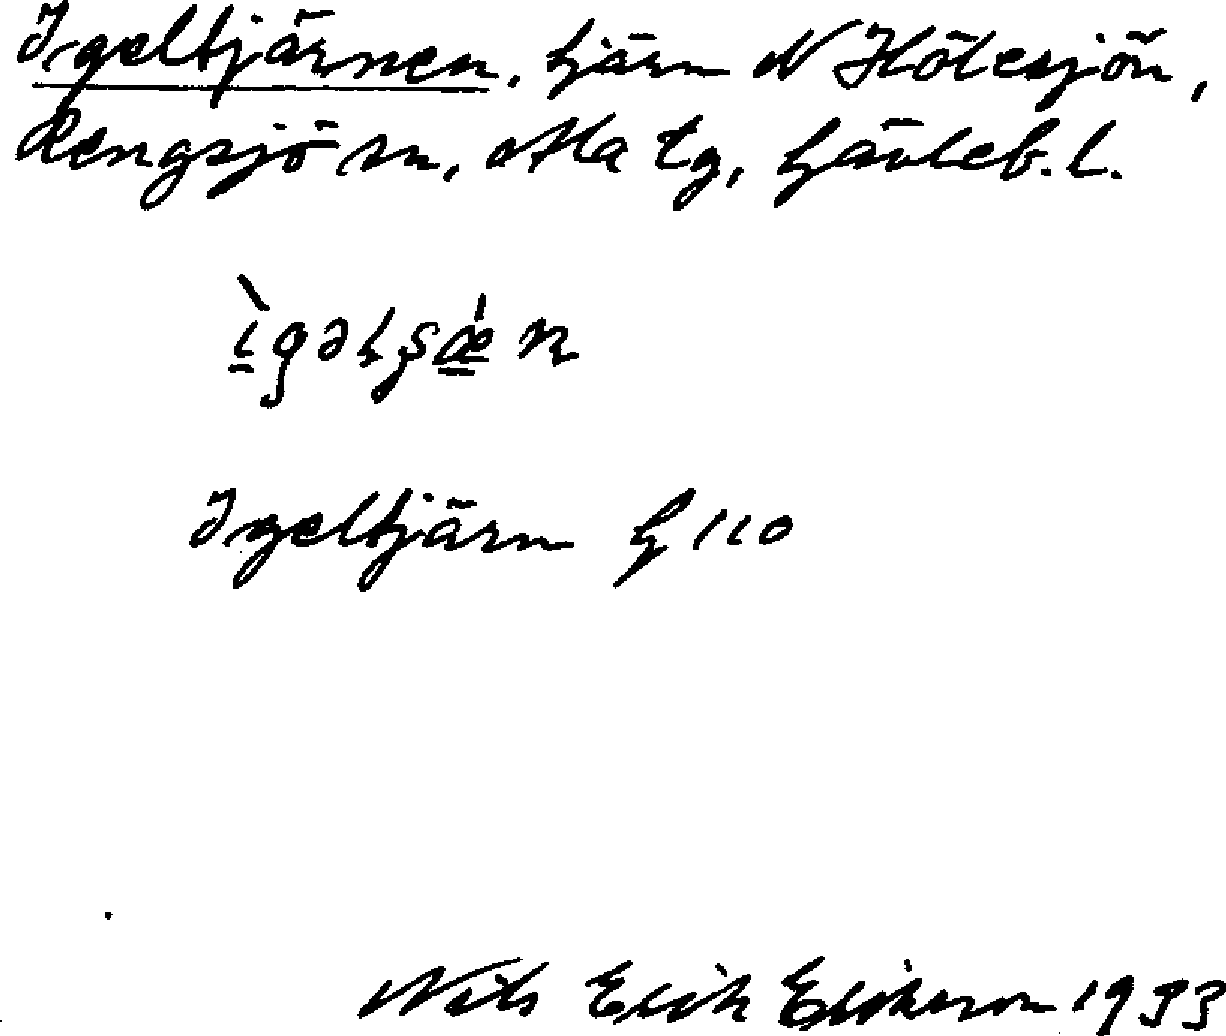 Igeltjärnen, tjärn N Hölesjön,
Rengsjö sn, Ala tg, Gävleb. l.
Igeltjärn G 110
Nils Erik Eriksson 1933